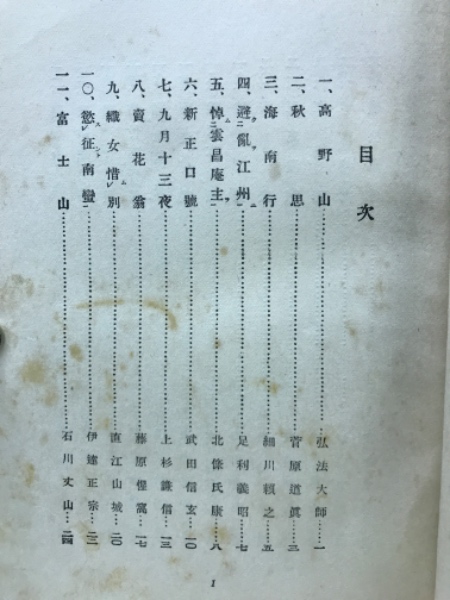 目次
一、高野山……弘法大師…一
二、秋思……菅原道眞…三
三、海南行……細川頼之…五
四、避亂江州……足利義昭…七
五、悼雲昌庵主……北條氏康…八
六、新正口號……武田信玄…一〇
七、九月十三夜……上杉謙信…一三
八、賣花翁……藤原惺窩…一七
九、織女惜別……直江山城…二〇
一〇、慾征南蠻……伊達正宗…二二
一一、富士山……石川丈山…二四
1